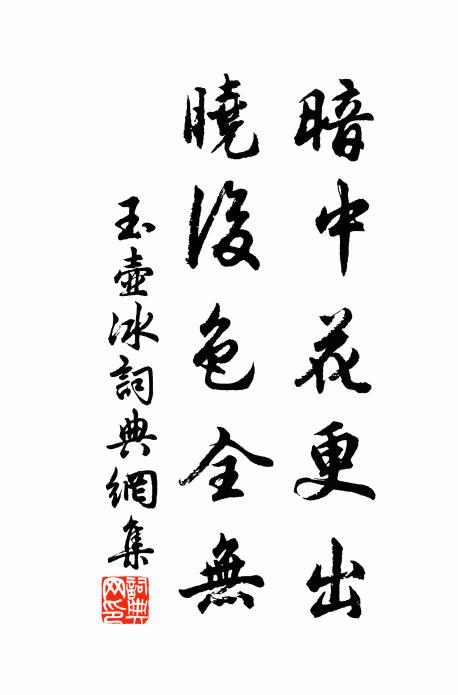 暗中花更出
曉後色全無
玉壺冰詞典網集
詞典網印